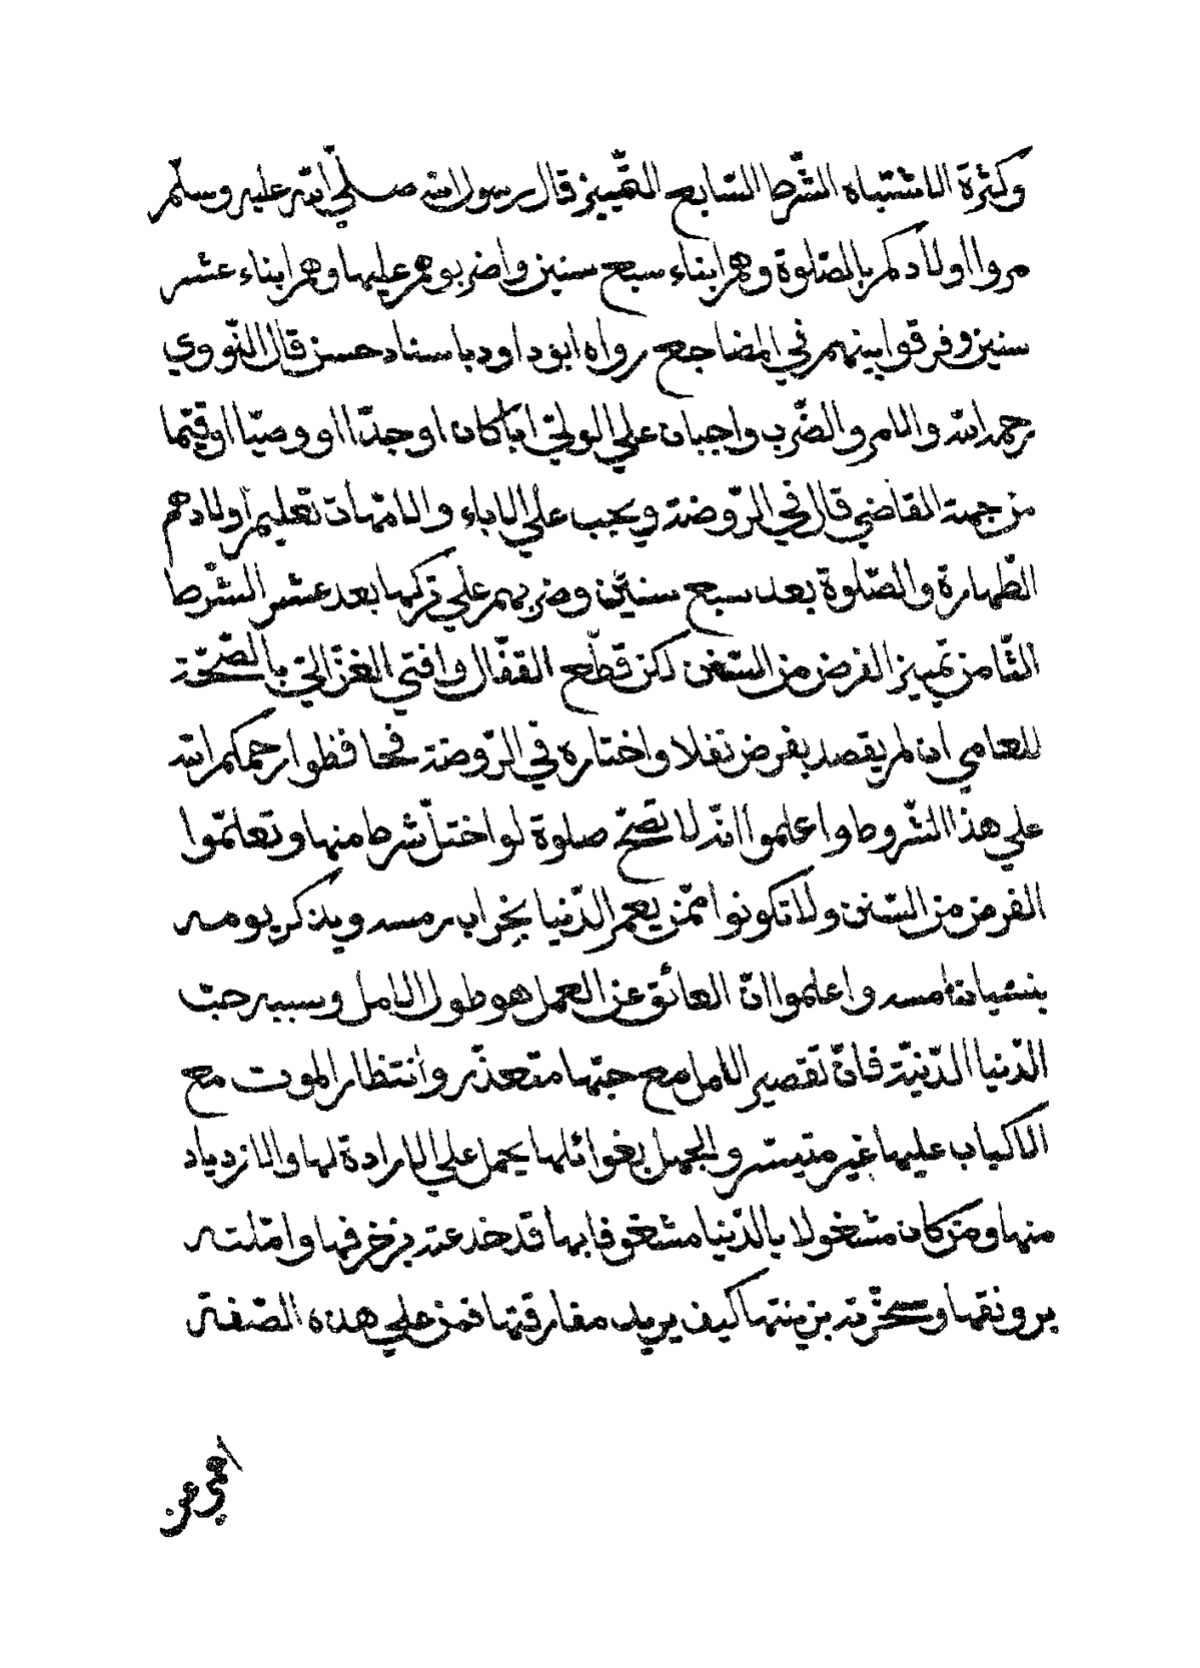 وكثرة الاشتباه الشّرط السّابع التّمييز قال رسول الله صلّي الله عليه وسلّم
مروا اولادكم بالصّلوة وهم ابناء سبع سنين واضربوهم عليها وهم ابناء عشر
سنين وفرقوا بينهم في المضاجع رواه ابو داود باسناد حسن قال النّووي
رحمه الله والامر والضّرب واجبان علي الوليّ ابا كان او جدّا او وصيّا او قيّما
من جهة القاضي قال في الرّوضة ويجب علي الاباء والامّهات تعليم اولادهم
الطّهارة والصّلوة بعد سبع سنين وضربهم علي تركها بعد عشر الشّرط
الثّامن تمييز الفرض من السّنن لكن قطّع القفّال وافتي الغزّالي بالصّحّة
للعامي ان لم يقصد بفرض نفلا واختاره في الرّوضة فحافظوا رحمكم الله
علي هذا الشّروط واعلموا انّه لا تصحّ صلوة لو اختلّ شرط منها وتعلّموا
الفرض من السّنن ولا تكونوا ممّن يعمر الدّنيا بخراب رمسه ويذكر يومه
بنسيان امسه واعلموا انّ العائق عن العمل هو طول الامل وسببه حبّ
الدّنيا الدّنيّة فانّ تقصير الامل مع حبّها متعذّر وانتظار الموت مع
الاكباب عليها غير متيسّر والجهل بغوائلها يحمل علي الارادة لها والازدياد
منها ومن كان مشغولا بالدّنيا مشغوفا بها قد خدعته بزخرفها وامّلته
برونقها وسحّرته بزينتها كيف يريد مفارقتها فمن علي هذه الصّفة
اعمي عن